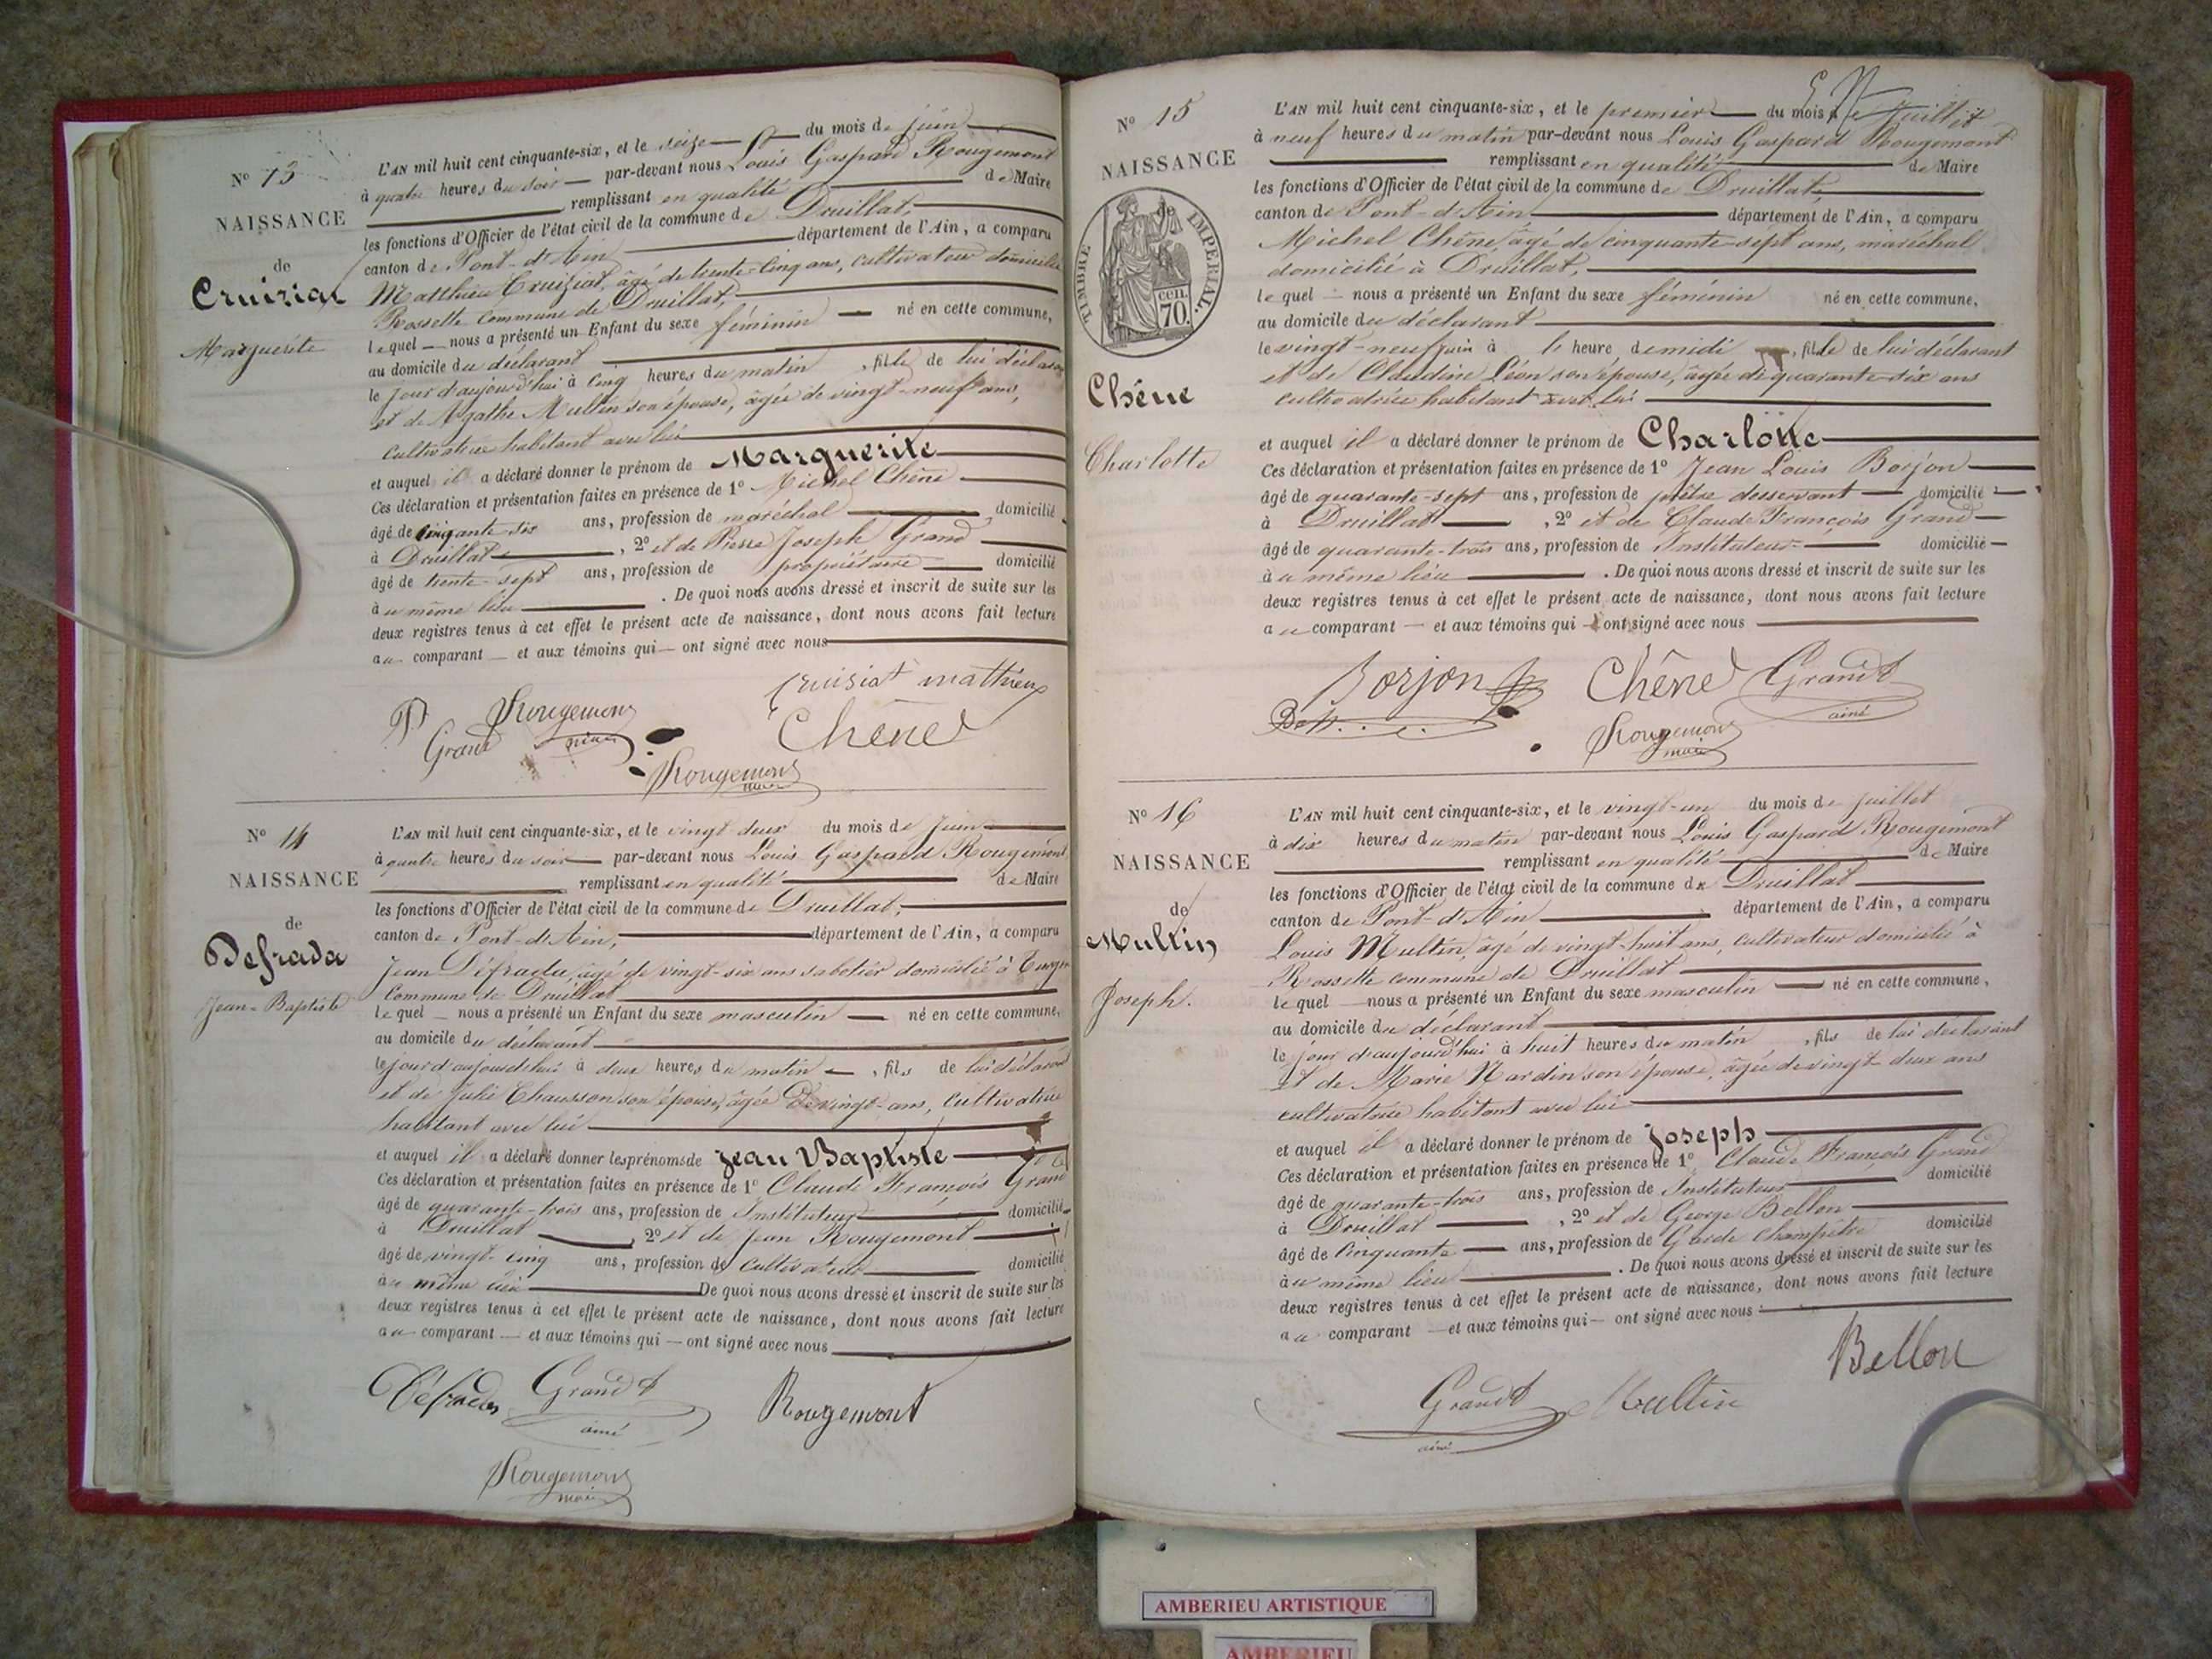 N° 13
NAISSANCE
de
Cruiziat
Marguerite
L'AN mil huit cent cinquante-six, et le seize du mois de juin
à quatre heures du soir par-devant nous Louis Gaspard Rougemont
remplissant en qualité de Maire
les fonctions d'Officier de l'état civil de la commune de Druillat,
canton de Pont-d'Ain département de l'Ain, a comparu
Matthieu Cruiziat, âgé de trente-cinq ans, cultivateur domicilié
Rossette commune de Druillat,
lequel nous a présenté un Enfant du sexe féminin né en cette commune,
au domicile du déclarant
le jour d'aujourd'hui à cinq heures du matin, fille de lui déclarant
et de Agathe Multin son épouse, âgée de vingt-neuf ans,
cultivatrice habitant avec lui
et auquel il a déclaré donner le prénom de Marguerite
Ces déclaration et présentation faites en présence de 1° Michel Chêne
âgé de cinquante six ans, profession de maréchal domicilié
à Druillat, 2° et de Pierre Joseph Grand
âgé de trente-sept ans, profession de propriétaire domicilié
au même lieu. De quoi nous avons dressé et inscrit de suite sur les
deux registres tenus à cet effet le présent acte de naissance, dont nous avons fait lecture
au comparant et aux témoins qui ont signé avec nous
Cruisiat matthieu
P Grand Rougemont maire
Chêne
Rougemont maire
N° 14
NAISSANCE
de
Defrada
Jean-Baptiste
L'AN mil huit cent cinquante-six, et le vingt deux du mois de Juin
à quatre heures du soir par-devant nous Louis Gaspard Rougemont
remplissant en qualité de Maire
les fonctions d'Officier de l'état civil de la commune de Druillat,
canton de Pont-d'Ain, département de l'Ain, a comparu
Jean Défrada, âgé de vingt-six ans sabotier domicilié à
Commune de Druillat
lequel nous a présenté un Enfant du sexe masculin né en cette commune,
au domicile du déclarant
le jour d'aujourd'hui à deux heures du matin, fils de lui déclarant
et de Julie Chausson son épouse, âgée de vingt-ans, Cultivatrice
habitant avec lui
et auquel il a déclaré donner les prénoms de Jean Baptiste
Ces déclaration et présentation faites en présence de 1° Claude François Grand
âgé de quarante-trois ans, profession de Instituteur domicilié
à Druillat, 2° et de Jean Rougemont
âgé de vingt-cinq ans, profession de Cultivateur domicilié
au même lieu De quoi nous avons dressé et inscrit de suite sur les
deux registres tenus à cet effet le présent acte de naissance, dont nous avons fait lecture
au comparant et aux témoins qui ont signé avec nous
Défrada Grand aîné Rougemont
Rougemont maire
N° 15
NAISSANCE
de
TIMBRE IMPERIAL.
cen. 70.
Chêne
Charlotte
L'AN mil huit cent cinquante-six, et le premier du mois de Juillet
à neuf heures du matin par-devant nous Louis Gaspard Rougemont
remplissant en qualité de Maire
les fonctions d'Officier de l'état civil de la commune de Druillat,
canton de Pont-d'Ain département de l'Ain, a comparu
Michel Chêne, âgé de cinquante-sept ans, maréchal
domicilié à Druillat,
lequel nous a présenté un Enfant du sexe féminin né en cette commune,
au domicile du déclarant
le vingt-neuf juin à heure de midi, fille de lui déclarant
et de Claudine Léon son épouse, âgée de quarante-six ans
cultivatrice habitant avec lui
et auquel il a déclaré donner le prénom de Charlotte
Ces déclaration et présentation faites en présence de 1° Jean Louis Borjon
âgé de quarante-sept ans, profession de prêtre desservant domicilié
à Druillat, 2° et de Claude François Grand
âgé de quarante-trois ans, profession de Instituteur domicilié
au même lieu. De quoi nous avons dressé et inscrit de suite sur les
deux registres tenus à cet effet le présent acte de naissance, dont nous avons fait lecture
au comparant et aux témoins qui ont signé avec nous
Borjon Chêne Grand aîné
Rougemont maire
N° 16
NAISSANCE
de
Multin
Joseph.
L'AN mil huit cent cinquante-six, et le vingt-un du mois de juillet
à dix heures du matin par-devant nous Louis Gaspard Rougemont
remplissant en qualité de Maire
les fonctions d'Officier de l'état civil de la commune de Druillat
canton de Pont-d'Ain département de l'Ain, a comparu
Louis Multin, âgé de vingt-huit ans, cultivateur domicilié à
Rossette commune de Druillat
lequel nous a présenté un Enfant du sexe masculin né en cette commune,
au domicile du déclarant
le jour d'aujourd'hui à huit heures du matin, fils de lui déclarant
et de Marie Nardin son épouse, âgée de vingt-deux ans
cultivatrice habitant avec lui
et auquel il a déclaré donner le prénom de Joseph
Ces déclaration et présentation faites en présence de 1° Claude François Grand
âgé de quarante-trois ans, profession de Instituteur domicilié
à Druillat, 2° et de George Bellon
âgé de Cinquante ans, profession de Garde Champêtre domicilié
au même lieu. De quoi nous avons dressé et inscrit de suite sur les
deux registres tenus à cet effet le présent acte de naissance, dont nous avons fait lecture
au comparant et aux témoins qui ont signé avec nous
Bellon
Grand aîné Multin
AMBERIEU ARTISTIQUE
AMBERIEU